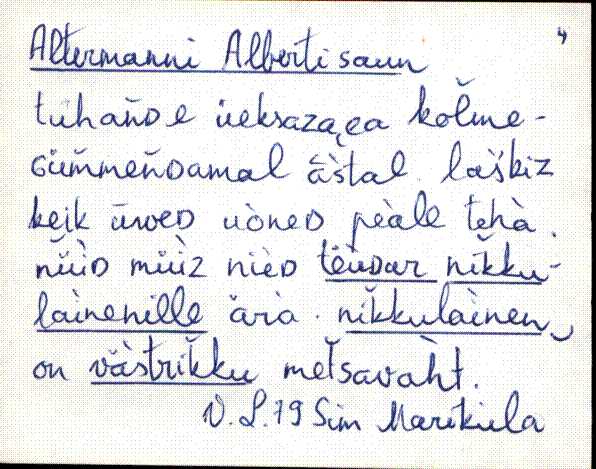 Altermanni Alberti saun 4
tuhaǹDe üeksazaɛa kolme-
Gümmeǹdamal ästal. laškiz
keik ūweD uòneD peàle tehà.
nǖìD mǖìz nièD tēùDar nikku-
laìnenille ärà. nikkulaìnen
on vàstrikku metsavaht.
V. L. 79 Sim Marikiela